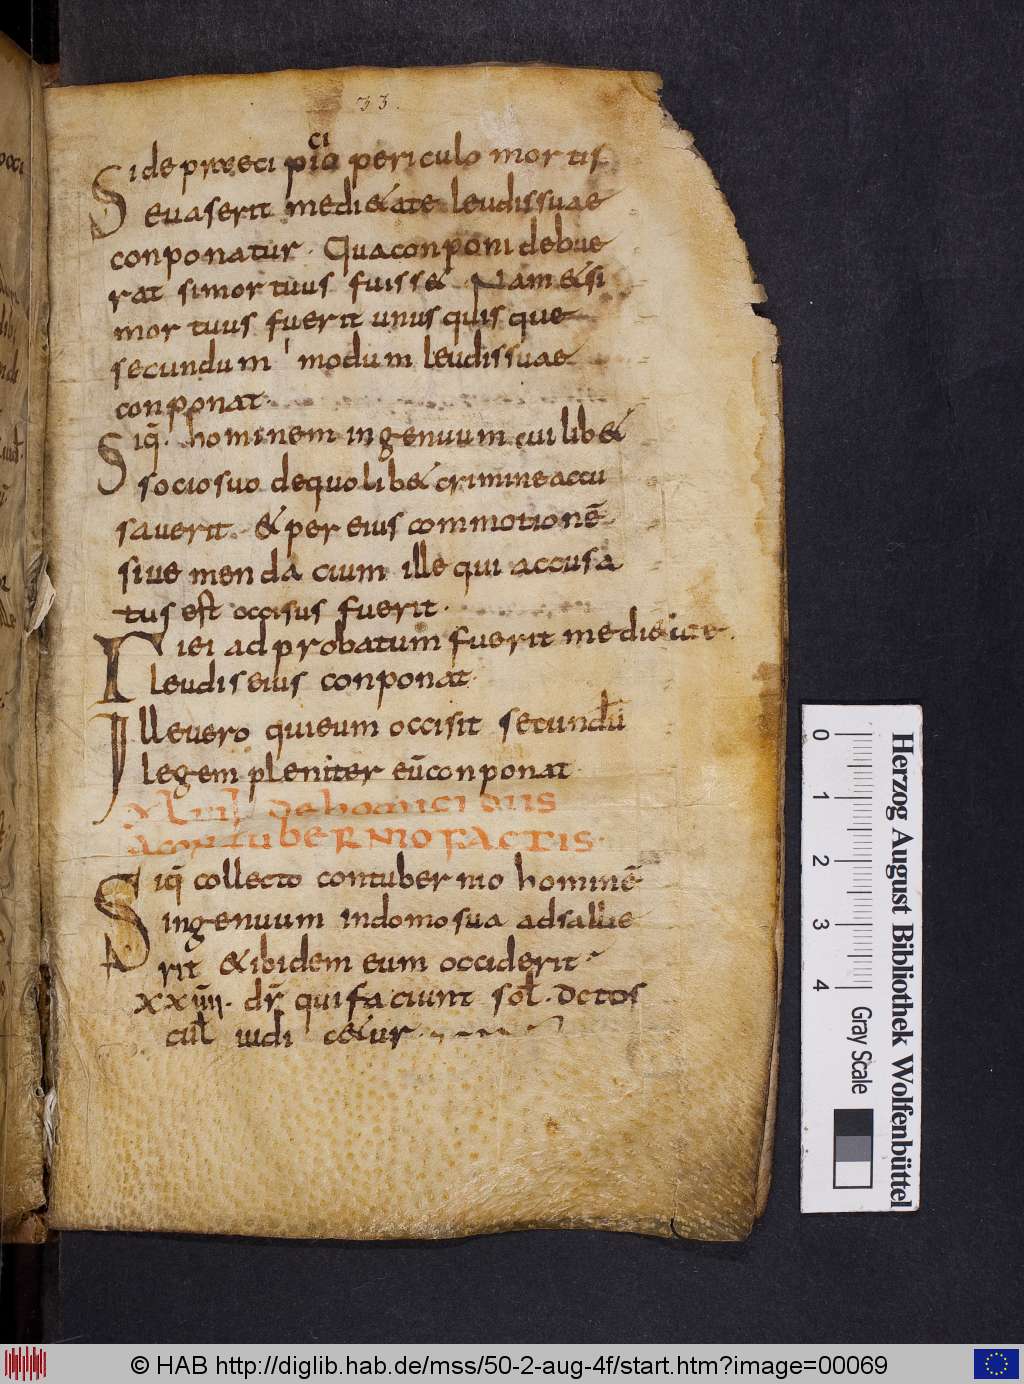 33.
Side præcipicio periculo mortis
evaserit medi&ate leudissuae
conponatur. Qua conponi debue
rat simortuus fuiss& Nam&si
mortuus fuerit unus quisque
secundum modum leudissuae
conponat.
Siq̄. hominem ingenuum cuilib&
sociosuo dequolib& crimine accu
saverit. & per eius commotionē
sive mendacium ille qui accusa
tus est occisus fuerit.
iei adprobatum fuerit medi&ate
leudiseius conponat.
Ille vero quieum occisit secundū
legem pleniter eūconponat
de homicidiis
a contubernio factis.
Siq̄ collecto contubernio hominē
ingenuum indomosua adsallie
rit & ibidem eum occiderit
xxiiii. dr̄ quifaciunt sol. dctos
cul iudic&ur
0 1 2 3 4
Gray Scale
Herzog August Bibliothek Wolfenbüttel
© HAB http://diglib.hab.de/mss/50-2-aug-4f/start.htm?image=00069